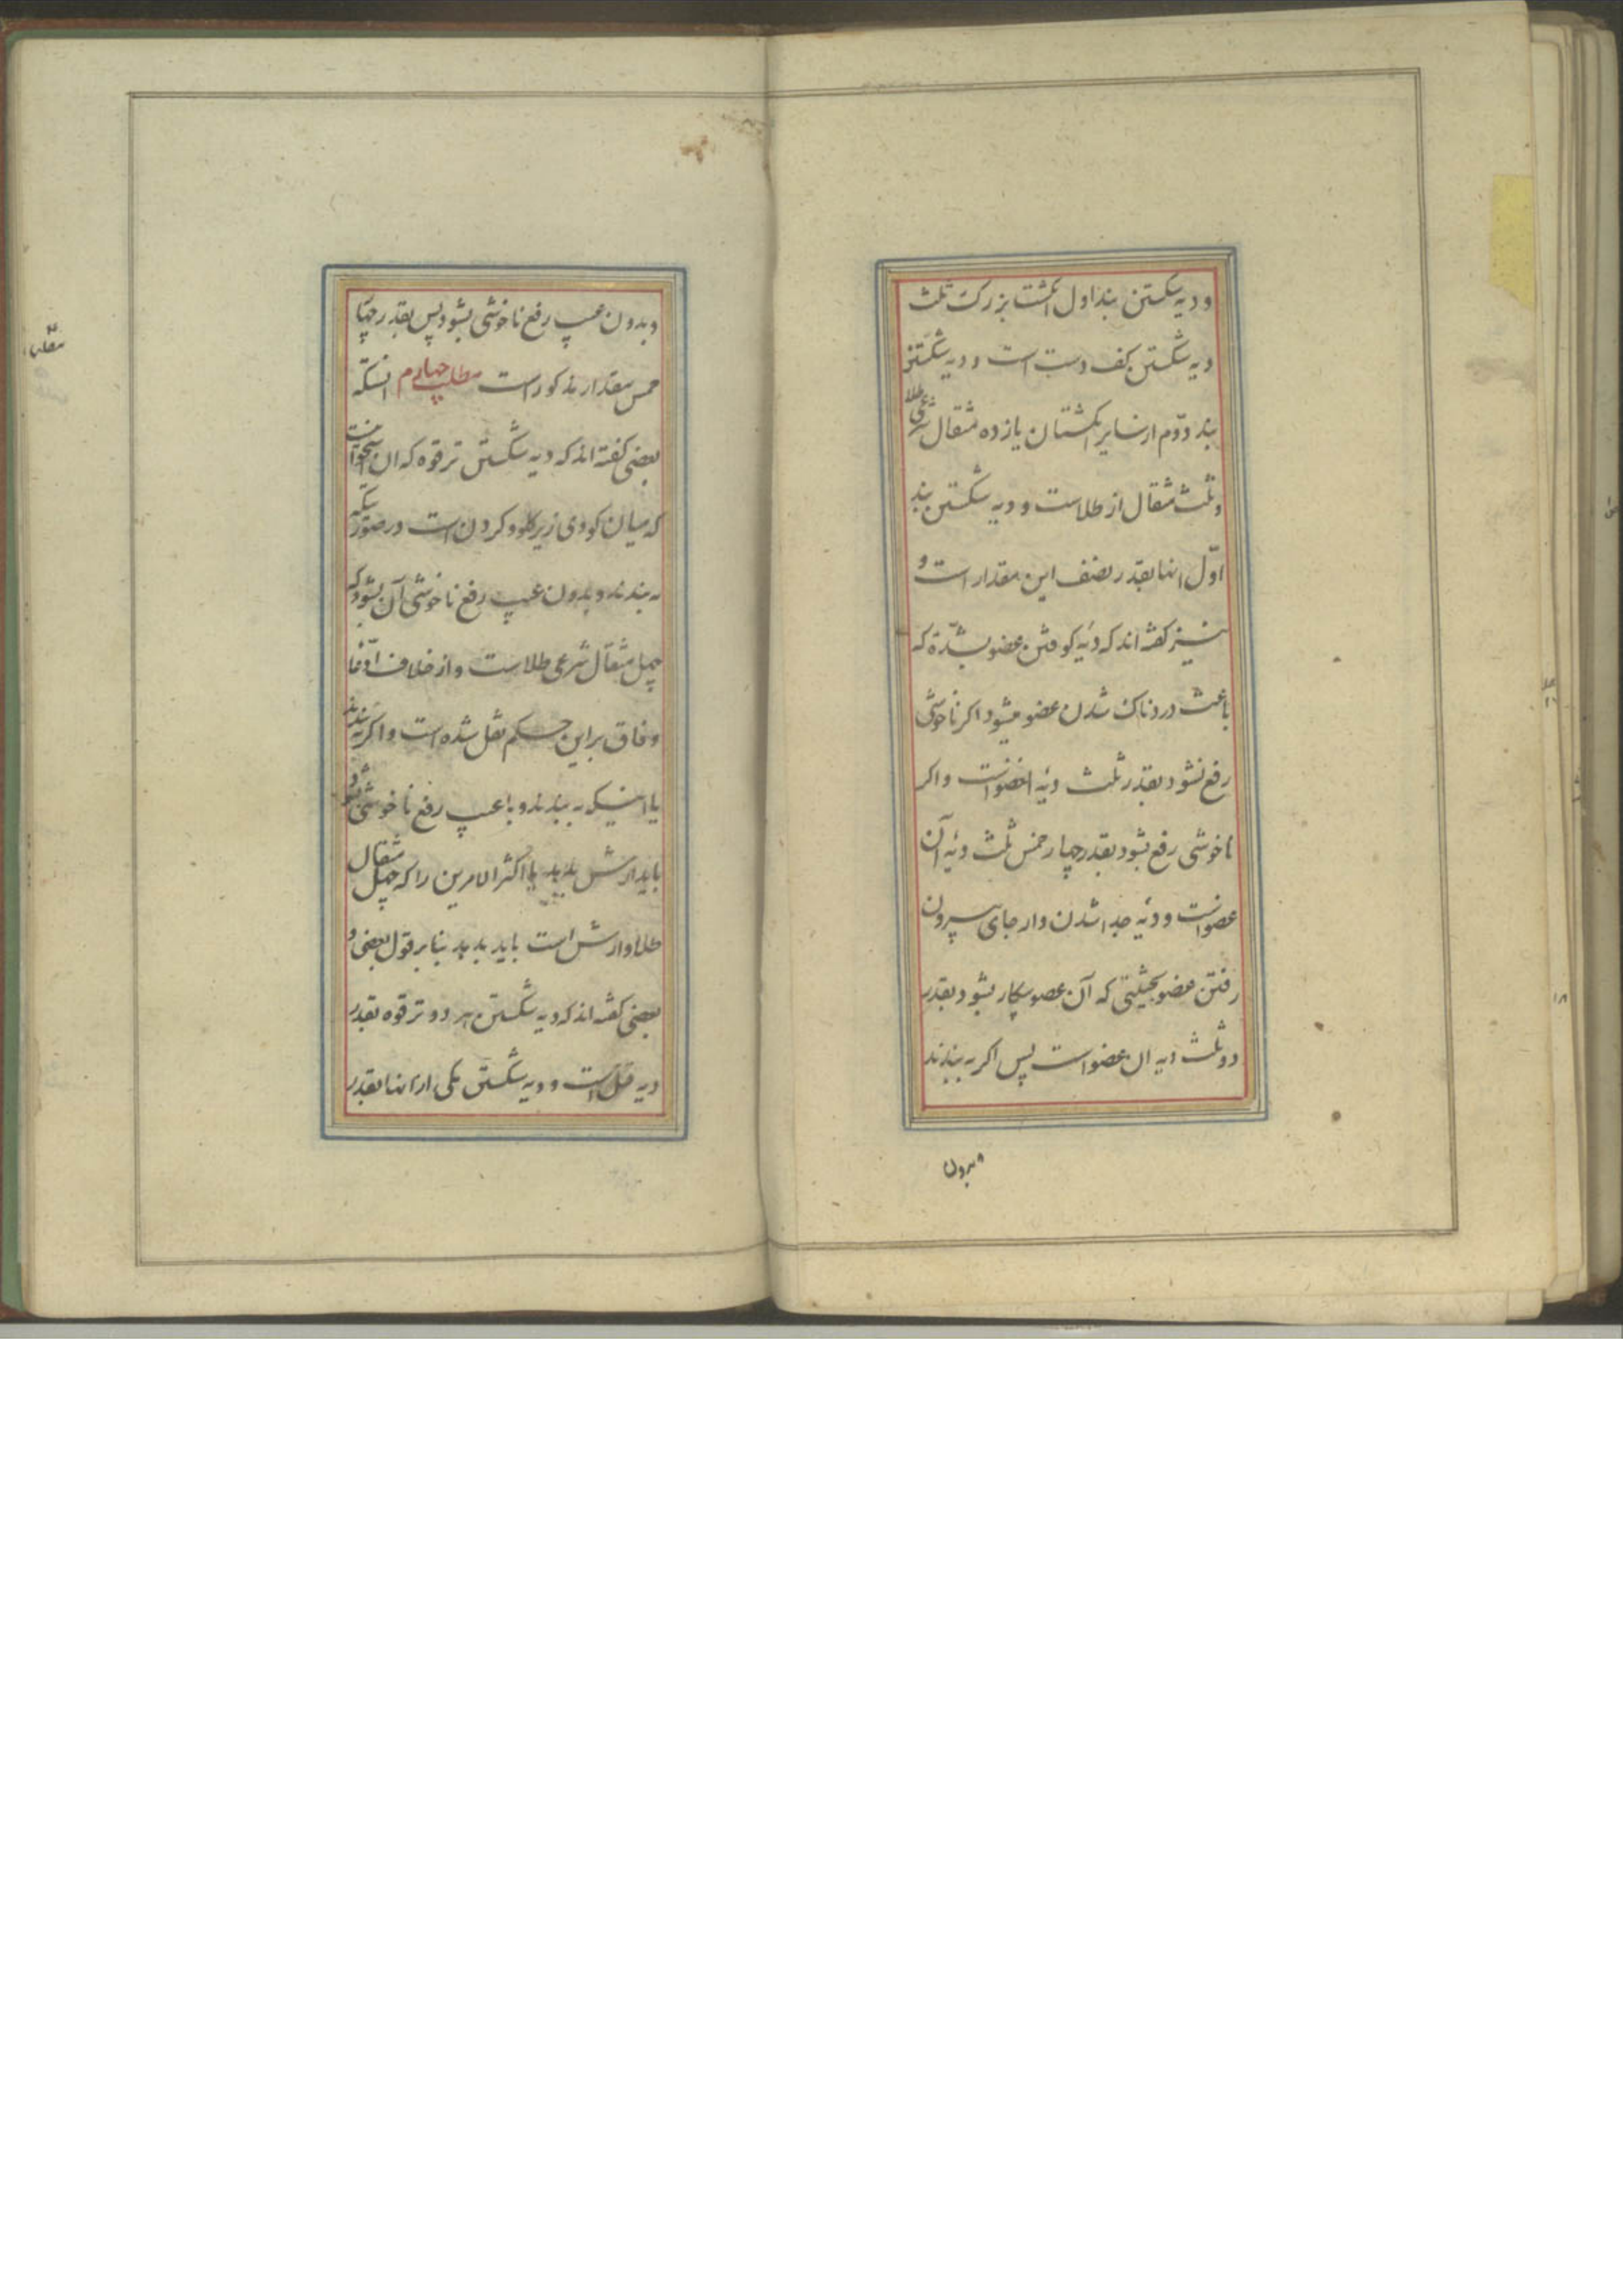 و دیه شکستن بند اول انکشت بزرک ثلث
دیه شکستن کف دست است و دیه شکستن
بند دوّم از سایر انکشتان یازده مثقال شرعی طلا
و ثلث مثقال از طلاست و دیه شکستن بند
اوّل انها بقدر نصف این مقدار است و
نیز کفته اند که دیه کوفتن عضو بشدّة که
باعث دردناک شدن عضو میشود اکر ناخوشی
رفع نشود بقدر ثلث دیه انعضوانست و اکر
ناخوشی رفع بشود بقدر چهار خمس ثلث دیه آن
عضوانست و دیه جدا شدن و از جای بیرون
رفتن عضو بحیثیتی که آن عضو بیکار بشود بقدر
دو ثلث دیه ان عضو است پس اکر به بندند
و بدون
و بدون عیب رفع ناخوشی بشود پس بقدر چهار
خمس مقدار مذکور است مطلب چهارم انستکه
بعضی کفته اند که دیه شکستن ترقوه که ان استخوانیست
که میان کودی زیر کلو و کردن است در صورتیکه
به بندند و بدون عیب رفع ناخوشی آن بشود که
چهل مثقال شرعی طلاست و از خلاف ادّعا
وفاق بر این حکم نقل شده است و اکر نبندند
یا اینکه به بندند و با عیب رفع ناخوشی بشود
باید ارش بدهد یا اکثر الامرین را که چهل مثقال
طلا و ارش است باید بدهد بنا بر قول بعضی و
بعضی کفته اند که دیه شکستن هر دو ترقوه بقدر
دیه قتل است و دیه شکستن یکی از انها بقدر